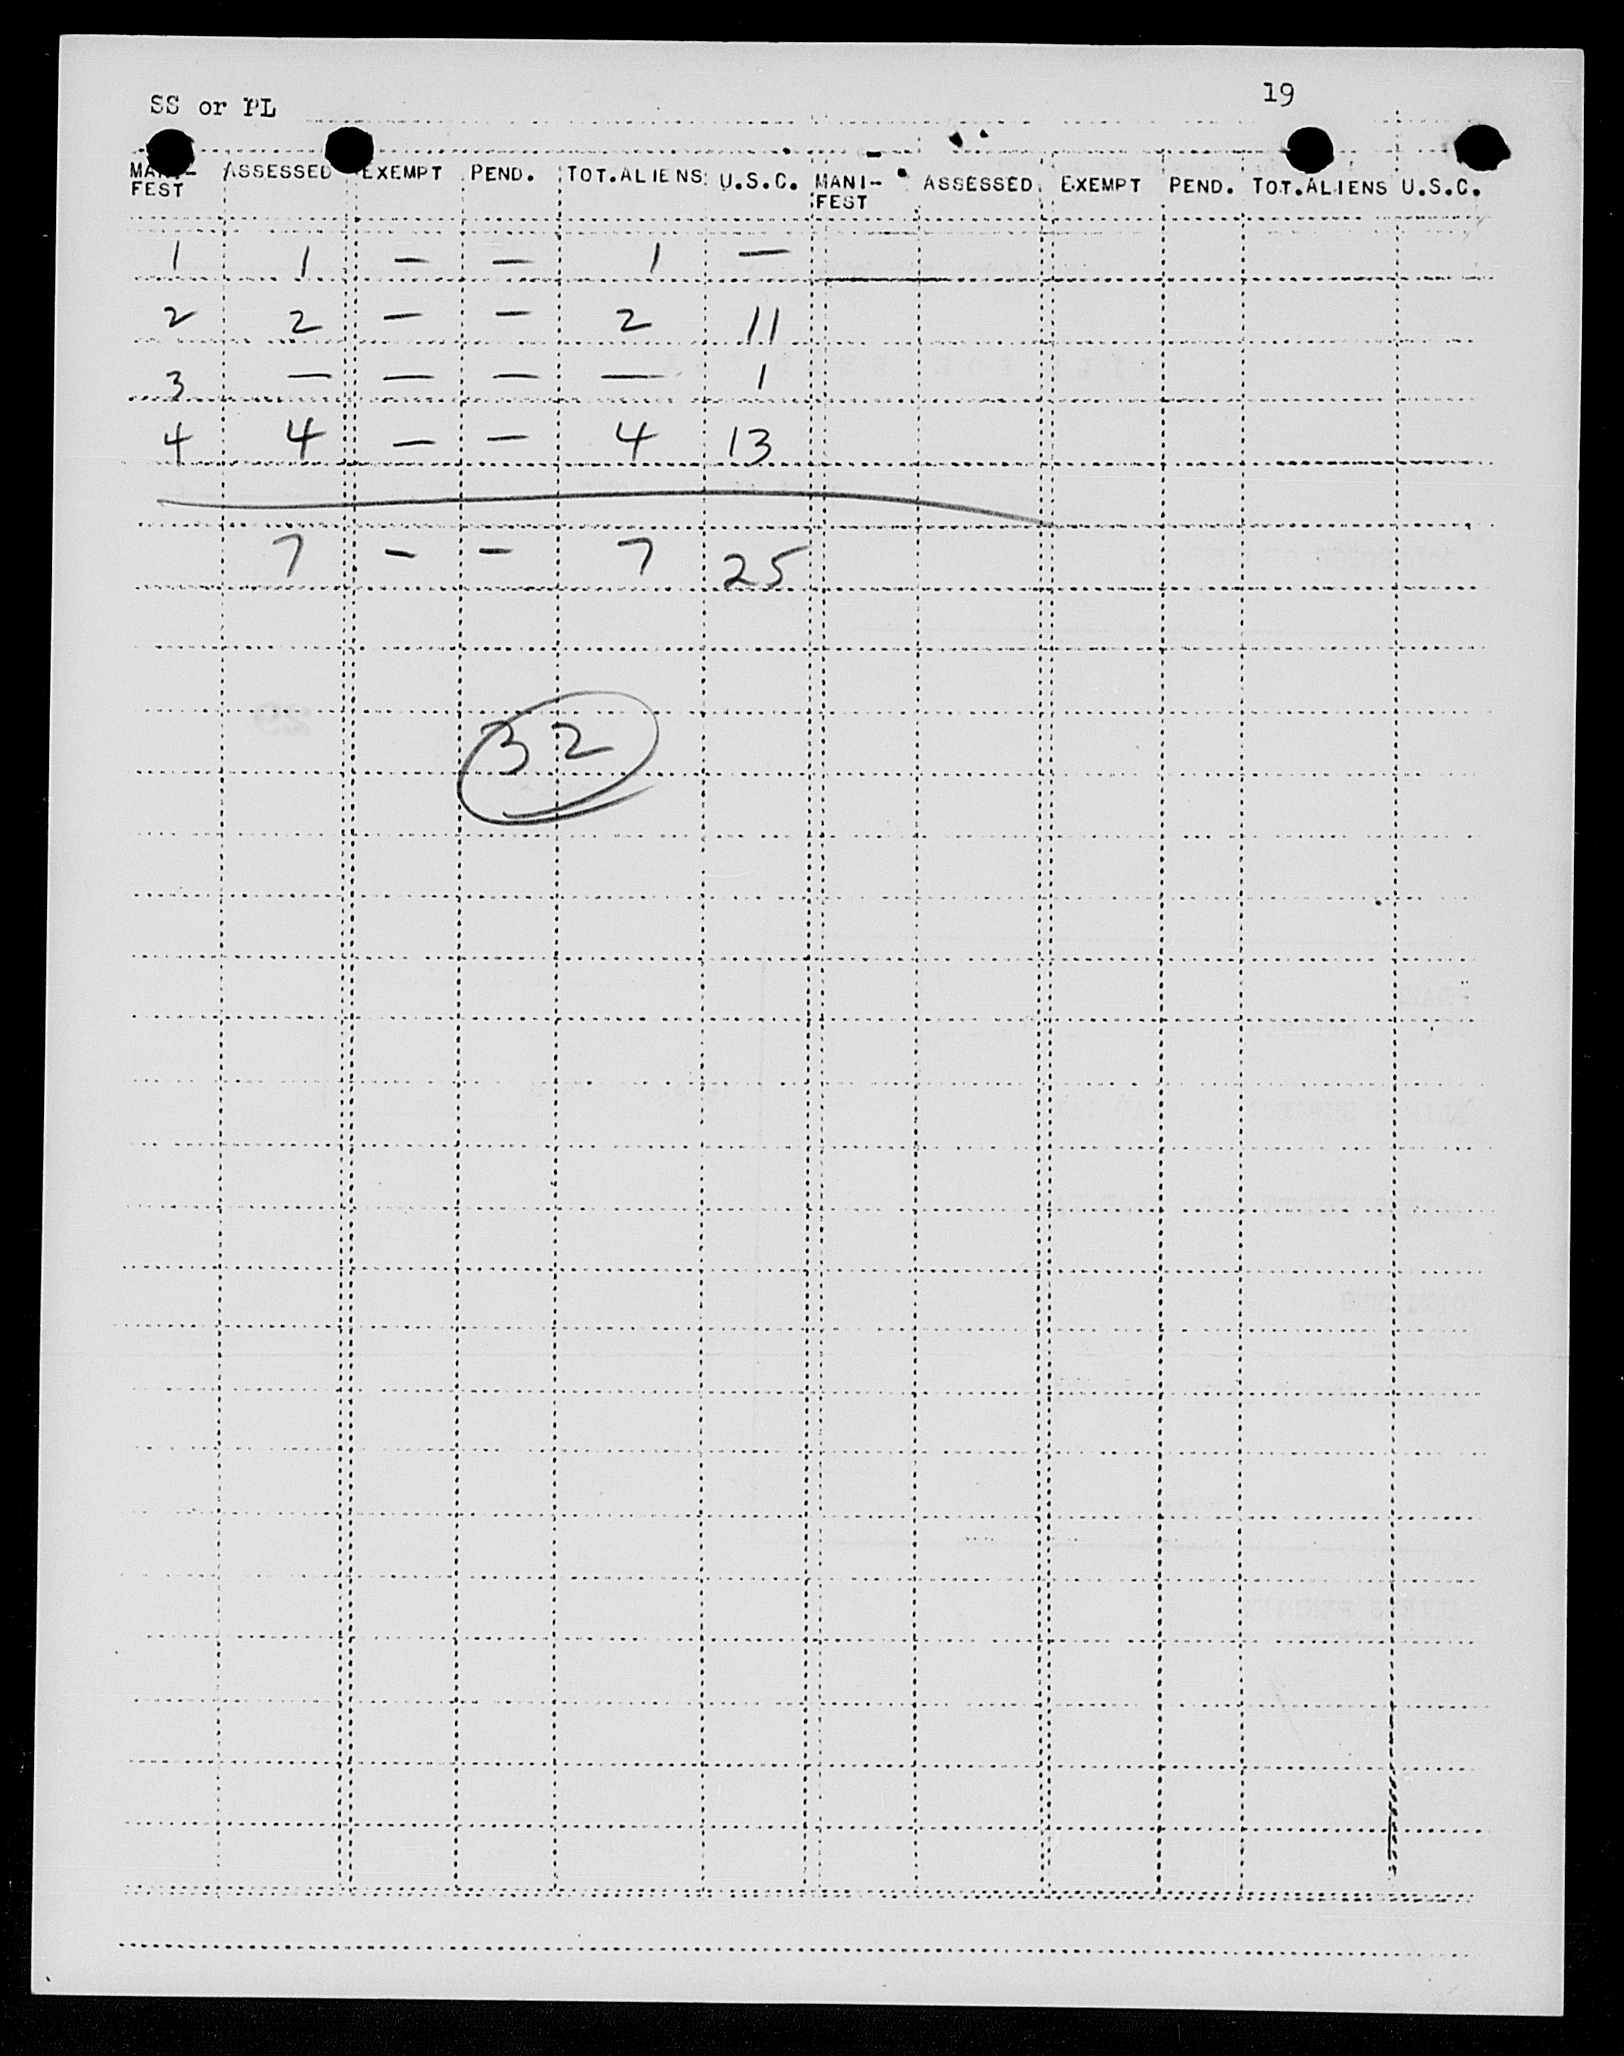 SS or PL 19
MANI- ASSESSED EXEMPT PEND. TOT.ALIENS U.S.C. MANI- ASSESSED EXEMPT PEND. TOT.ALIENS U.S.C.
FEST FEST
1 1 — — 1 —
2 2 — — 2 11
3 — — — — 1
4 4 — — 4 13
7 — — 7 25
32